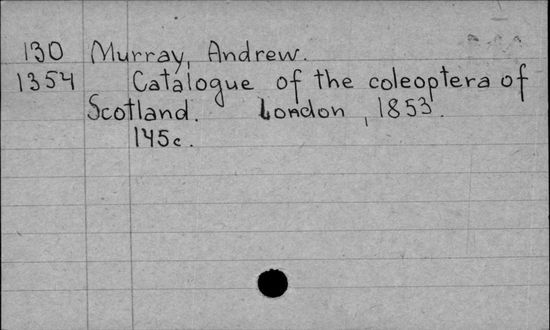 130 Murray, Andrew.
1354 Catalogue of the coleoptera of
Scotland. London, 1853.
145c.